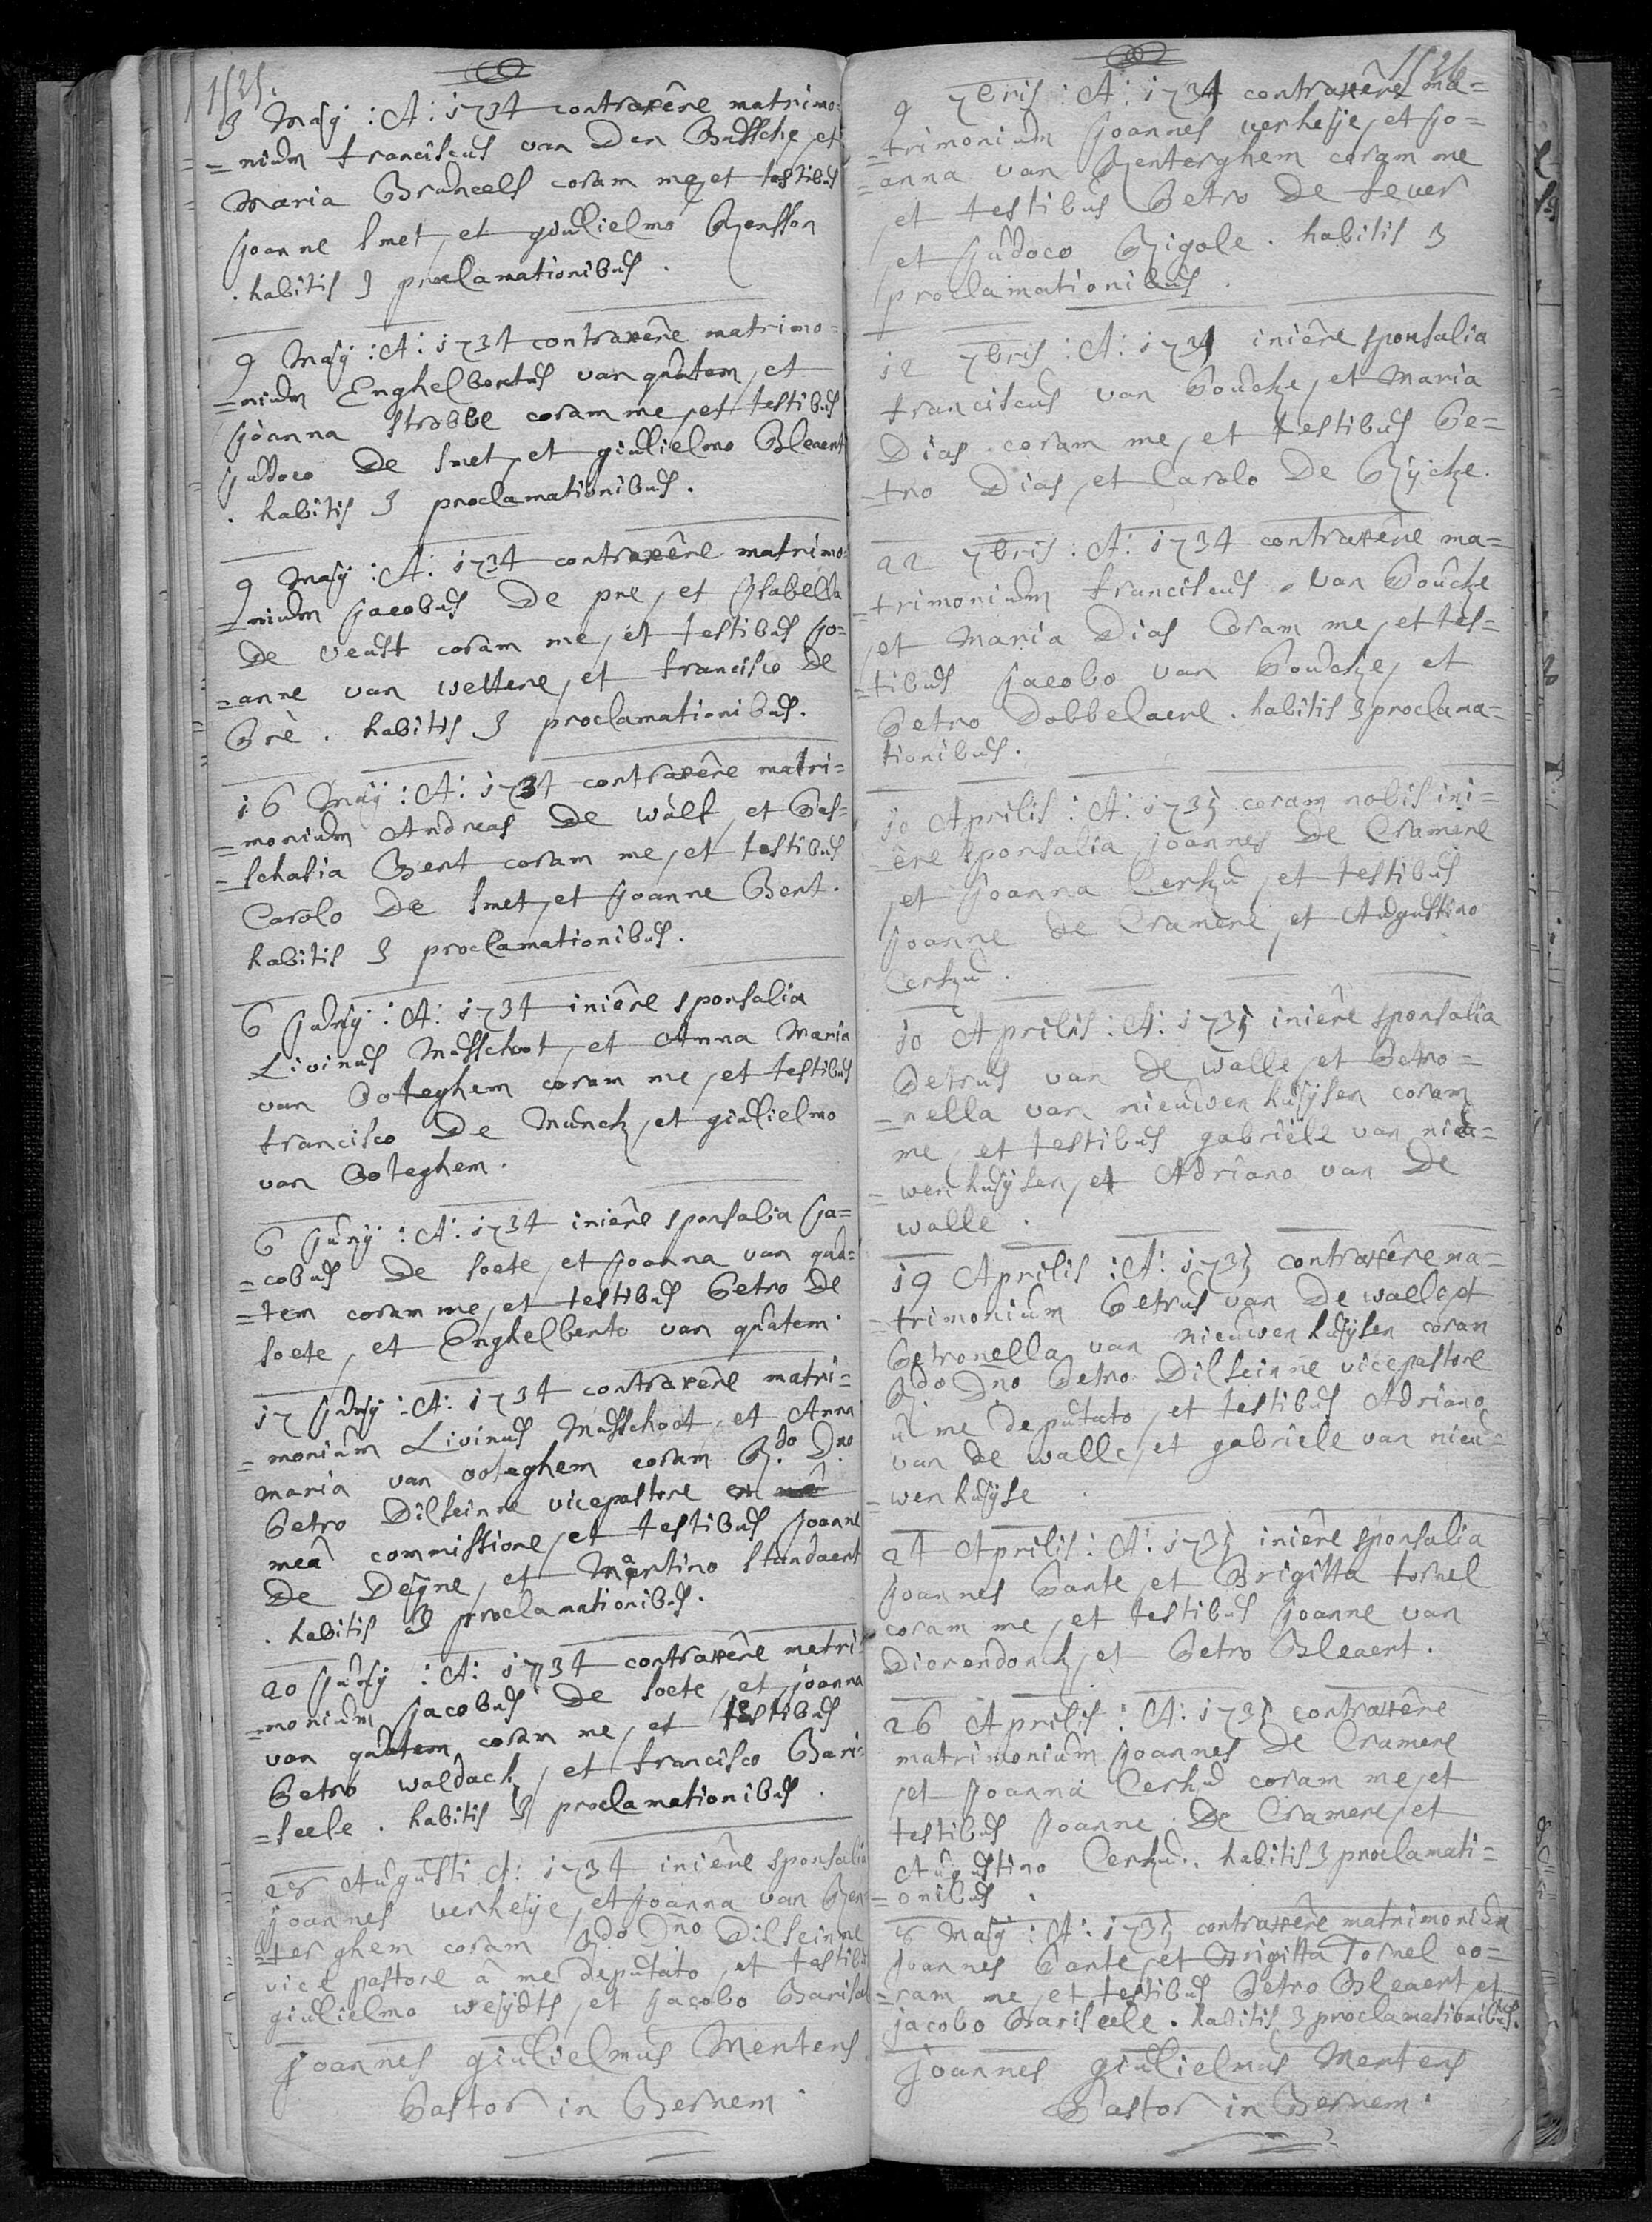 1525.
3 Maij : A: 1734 contraxêre matrimo=
=nium franciscus van Den Bussche, et
Maria Bruneels coram me, et testibus
Joanne Smet, et giulielmo Rensson
. habitis 3 proclamationibus.
9 Maij : A: 1734 contraxêre matrimo=
=nium Enghelbertus van quatem, et
Joanna Strobbe coram me, et testibus
Judoco De Smet, et giulielmo Bleaert
. habitis 3 proclamationibus.
9 Maij : A: 1734 contraxêre matrimo=
=nium Jacobus De pre, et Isabella
De Veust coram me, et testibus Jo=
=anne van wettere, et francisco De
Prè. habitis 3 proclamationibus.
16 Maij : A: 1734 contraxêre matri=
=monium Andreas De wulf, et Pas=
=schasia Bert coram me, et testibus
Carolo De Smet, et Joanne Bert.
habitis 3 proclamationibus.
6 Junij : A: 1734 iniêre sponsalia
Livinus Musschoot, et Anna Maria
van Ooteghem coram me, et testibus
francisco De Munck, et giulielmo
van Ooteghem.
6 Junij : A: 1734 iniêre sponsalia Ja=
=cobus De Soete, et Joanna van qua=
=tem coram me, et testibus Petro De
Soete, et Enghelberto van quatem.
17 Junij : A: 1734 contraxêre matri=
=monium Livinus Musschoot, et Anna
maria van ooteghem coram R.do D.no
Petro Dilseinne vicepastore ex
meâ commissione, et testibus Joanne
De Deijne, et Martino Standaert
. habitis 3 proclamationibus.
20 Junij : A: 1734 contraxêre matri=
=monium Jacobus De Soete, et joanna
van quatem coram me, et testibus
Petro waldack, et francisco Bari=
=seele. habitis 3 proclamationibus.
28 Augusti A: 1734 iniêre sponsalia
joannes verheije, et Joanna van Ren
=terghem coram R.do D.no Dilseinne
vice pastore â me deputato, et testibu
giulielmo weijdts, et Jacobo Barise
Joannes giulielmus Mentens
Pastor in Bernem.
1526
9 7bris : A: 1734 contraxêre ma=
=trimonium Joannes verheije, et Jo=
=anna van Renterghem coram me
et testibus Petro De fever
et Judoco Rigole. habitis 3
proclamationibus.
12 7bris : A: 1734 iniêre sponsalia
franciscus van Poucke, et Maria
Dias coram me, et testibus Pe=
=tro Dias, et Carolo De Rijcke.
22 7bris : A: 1734 contraxêre ma=
=trimonium franciscus van Poucke
et Maria Dias Coram me, et tes=
=tibus Jacobo van Poucke, et
Petro Dobbelaere. habitis 3 proclama=
tionibus.
10 Aprilis : A: 1735 coram nobis ini=
=êre sponsalia joannes De Cramere
et Joanna Cerku, et testibus
Joanne de Cramere, et Augustino
Cerku.
10 Aprilis : A: 1735 iniêre sponsalia
Petrus van De walle, et Petro=
=nella van nieuwenhuijsen coram
me, et testibus gabriele van nieu=
=wenhuijsen, et Adriano van De
walle.
19 Aprilis : A: 1735 contraxêre ma=
=trimonium Petrus van De walle, et
Petronella van nieuwenhuijsen coram
R.do D.no Petro Dilseinne vicepastore
â me deputato, et testibus Adriano
van de walle, et gabriele van nieu=
=wenhuijse.
24 Aprilis : A: 1735 iniêre sponsalia
Joannes Pante, et Brigitta tornel
coram me, et testibus Joanne van
Dierendonck, et Petro Bleaert.
26 Aprilis : A: 1735 contraxêre
matrimonium Joannes De Cramere
et Joanna Cerku coram me, et
testibus Joanne De Cramere, et
Augustino Cerku. habitis 3 proclamati=
=onibus.
8 Maij : A: 1735 contraxêre matrimonium
Joannes Pante, et Brigitta Tornel co=
=ram me, et testibus Petro Bleaert, et
jacobo Bariseele. habitis 3 proclamationibus.
Joannes giulielmus Mentens
Pastor in Bernem.